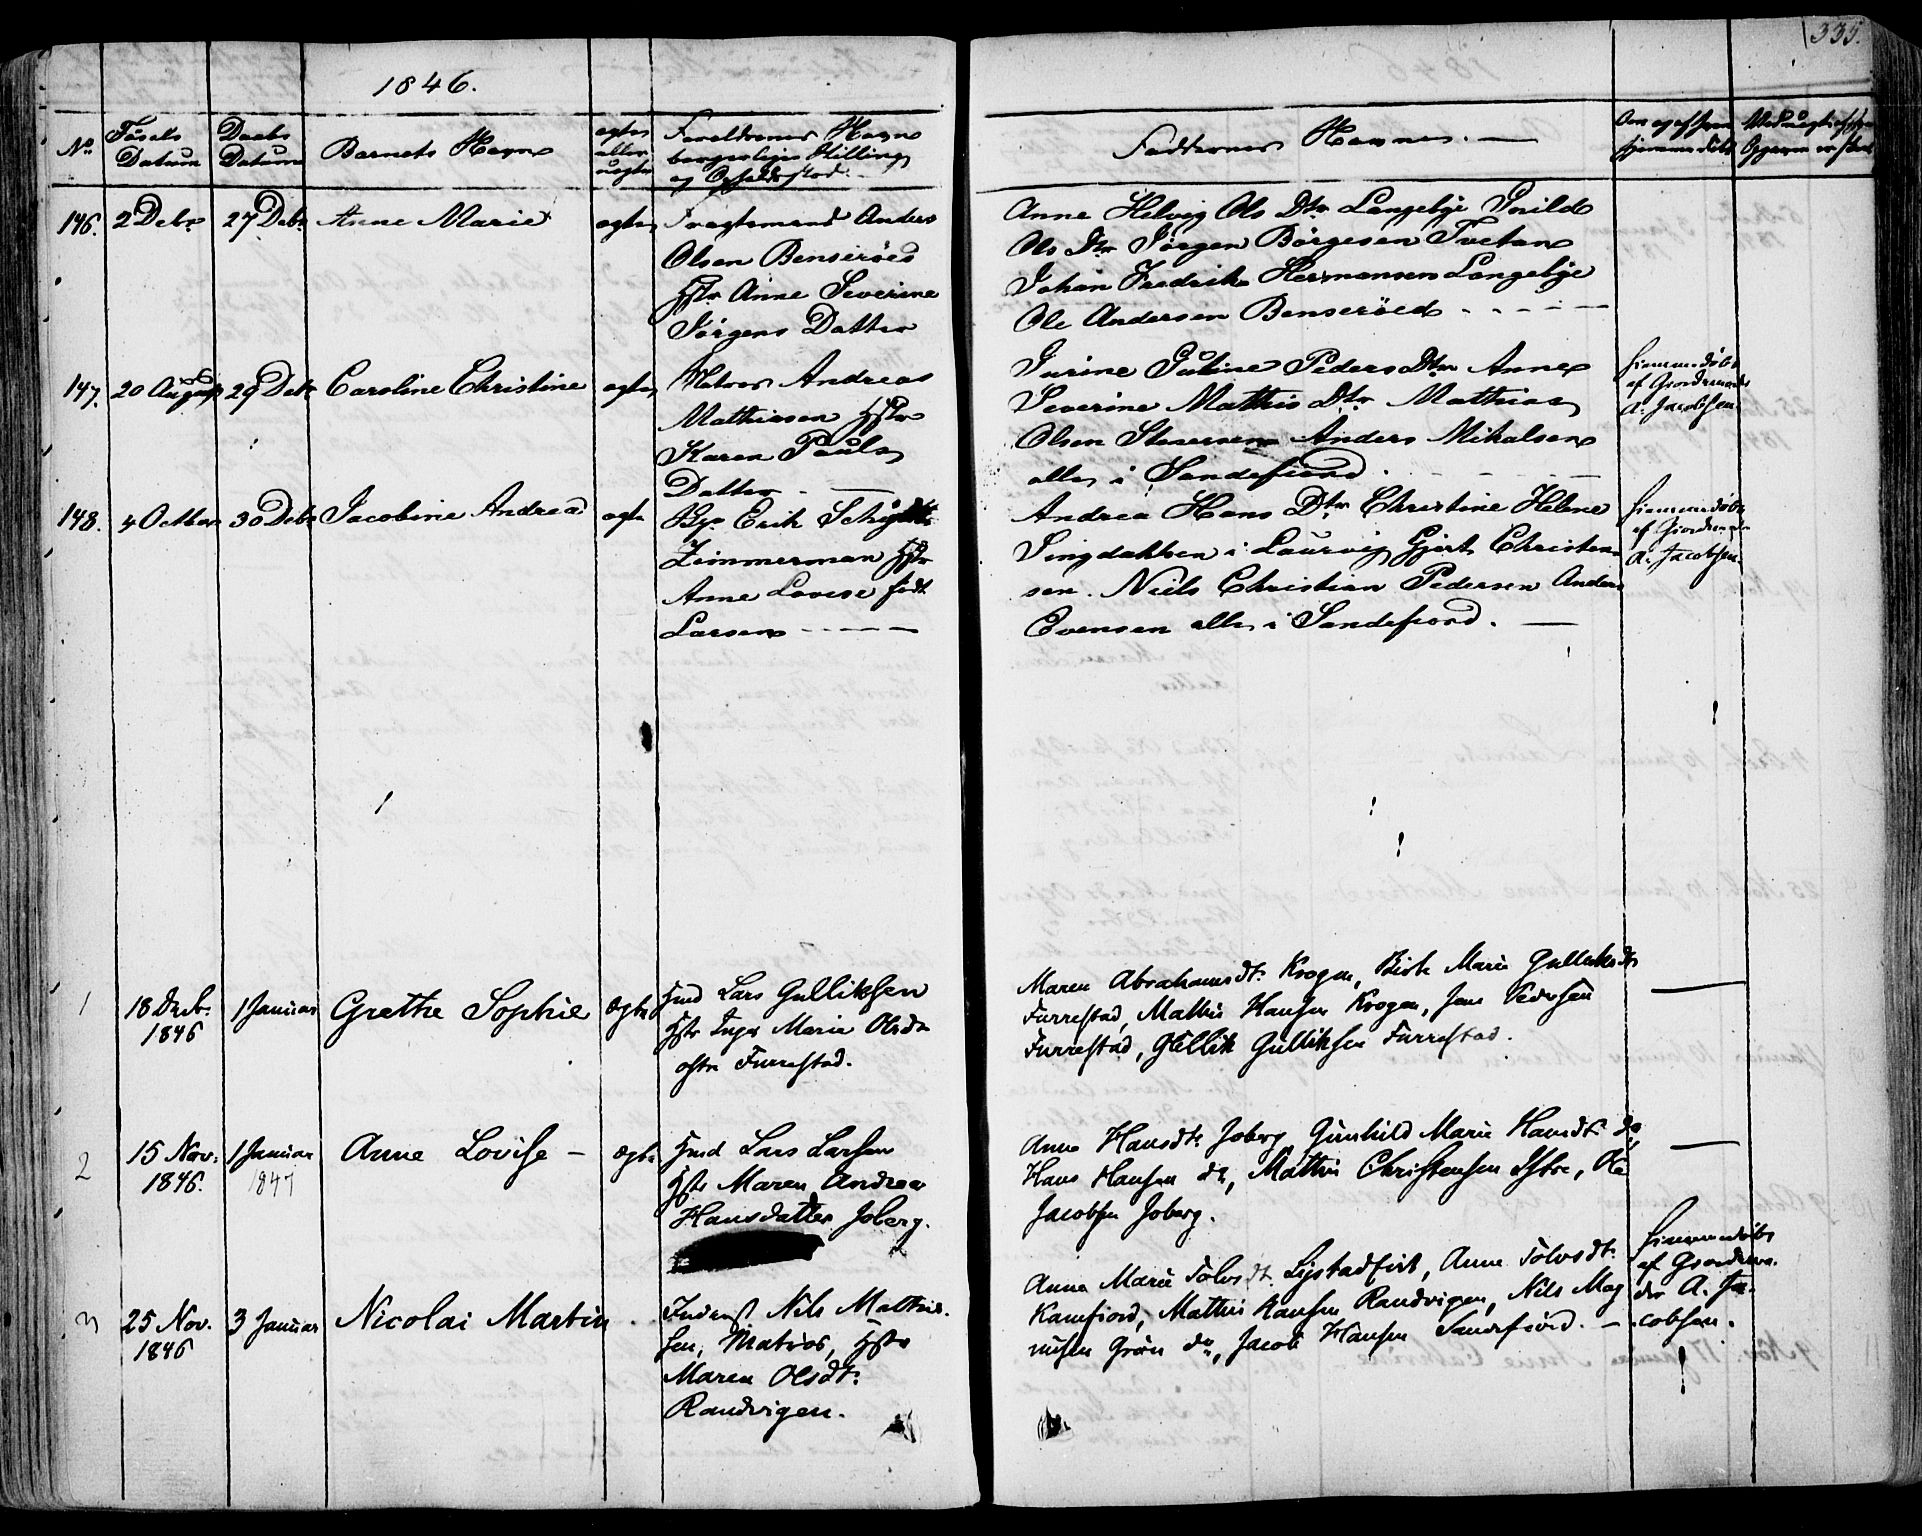 335.
1846.
No
Føsels Datum
Daabs Datum
Barnets Navn
ægte eller uægte
Forældrenes Navn
borgerlige Stilling
og Opholdsstod
Faddernes Navne. —
Om og af hvem
hjemmedøbt
146. 2 Debr 27 Debr Anne Marie ægte
Fragtemand Anders
Olsen Benserøed
Hstr Anne Severine
Jørgens Datter
Anne Helvig Ols Dtr Langebye Gunild
Ols Dtr Jørgen Børgesen Tvetan
Johan Fredrik Hermansen Langebye
Ole Andersen Benserøed - - - - -
147. 20 August 29 Debr Caroline Christine ægte
Matros Andreas
Mathiasen Hstr
Karen Pouls
Datter - —
Gurine Peders Dtr Anne
Severine Mathis Dtr Mathias
Olsen Anders Mikalsen
alle i Sandefiord - - -
hiemmedøbt
af Giordemoder
A. Jacobsen.
148. 4 Octbr 30 Debr Jacobine Andrea ægte
Erik
Zimmerman Hstr
Anne Lovise født
Larsen - - - - —
Andrea Hans Dtr Christine Helene
i Laurvig Gjert Christen-
sen. Niels Christian Pedersen Anders
Evensen alle i Sandefiord. —
hiemmedøbt
af Giordemoder
A. Jacobsen.
1 18 Decb. 1846 1 Januar Grethe Sophie ægte
Hmd Lars Gulliksen
Hstr Inger Marie Olsda-
ostre Furrestad.
Maren Abrahamsdt: Krogen, Birte Marie Gulliksdt
Furrestad, Mathis Hansen Krogen, Jens Pedersen
Furrestad, Gullik Gulliksen Furrestad.
2 15 Nov: 1846. 1 Januar 1847 Anne Lovise – ægte
Hmd Lars Larsen
Hstr Maren Andrea
Hansdatter Joberg.
Anne Hansdt: Joberg, Gunhild Marie Hansdt do
Hans Hansen do, Mathis Christensen Istre, Ole
Jacobsen Joberg.
3 25 Nov. 1846 3 Januar Nicolai Martin .
Inderst Nils Mathis-
sen, Matros, Hstr
Maren Olsdt:
Randvigen.
Anne Marie Tolvsdt. Lystadfirk, Anne Tolvsdt:
Kamfiord, Mathis Hansen Randvigen, Nils Mag
nusen Grøn do, Jacob Hansen Sandefiord. –
hiemmedøbt
af Giordemo-
der A. Ja-
cobsen.